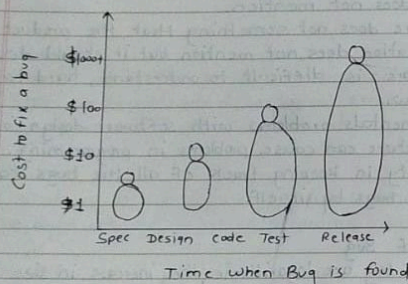 Cost to fix a bug
$1000+
$100
$10
$1
Spec Design code Test Release
Time when Bug is found